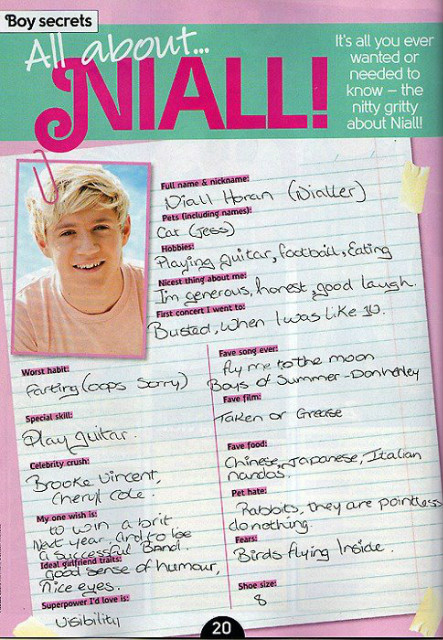 Boy secrets
All about...
NIALL!
It's all you ever
wanted or
needed to
know – the
nitty gritty
about Niall!
Full name & nickname:
Niall Horan (Nialler)
Pets (including names):
Cat (Jess)
Hobbies:
Playing guitar, football, Eating
Nicest thing about me:
I'm generous, honest, good laugh.
First concert I went to:
Busted, when I was like 10.
Worst habit:
farting (oops sorry)
Special skill:
Play guitar.
Celebrity crush:
Brooke Vincent,
Cheryl Cole.
My one wish is:
to win a brit
Next year. And to be
a successful Band.
Ideal girlfriend traits:
good sense of humour,
nice eyes.
Superpower I'd love is:
visibility
Fave song ever:
fly me to the moon
Boys of Summer - Don Henley
Fave film:
Taken or Grease
Fave food:
Chinese, Japanese, Italian
nandos.
Pet hate:
Rabbits, they are pointless
do nothing.
Fears:
Birds flying Inside.
Shoe size:
8
20